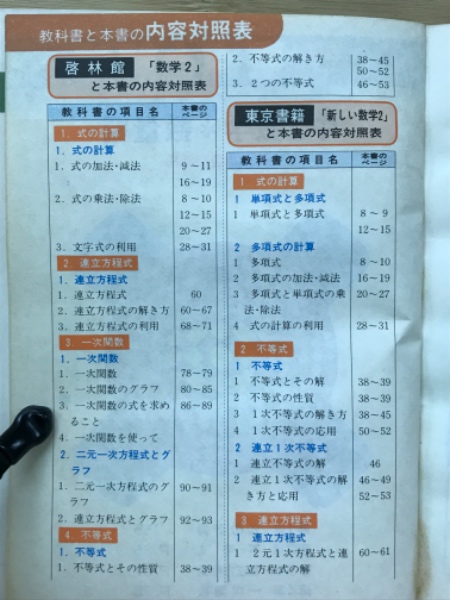 教科書と本書の内容対照表
啓林館 「数学2」
と本書の内容対照表
教科書の項目名 本書のページ
1. 式の計算
1. 式の計算
1. 式の加法・減法 9〜11
16〜19
2. 式の乗法・除法 8〜10
12〜15
20〜27
3. 文字式の利用 28〜31
2. 連立方程式
1. 連立方程式
1. 連立方程式 60
2. 連立方程式の解き方 60〜67
3. 連立方程式の利用 68〜71
3. 一次関数
1. 一次関数
1. 一次関数 78〜79
2. 一次関数のグラフ 80〜85
3. 一次関数の式を求め 86〜89
ること
4. 一次関数を使って
2. 二元一次方程式とグ
ラフ
1. 二元一次方程式のグ 90〜91
ラフ
2. 連立方程式とグラフ 92〜93
4. 不等式
1. 不等式
1. 不等式とその性質 38〜39
2. 不等式の解き方 38〜45
50〜52
3. 2つの不等式 46〜53
東京書籍 「新しい数学2」
と本書の内容対照表
教科書の項目名 本書のページ
1 式の計算
1 単項式と多項式
1 単項式と多項式 8〜9
12〜15
2 多項式の計算
1 多項式 8〜10
2 多項式の加法・減法 16〜19
3 多項式と単項式の乗 20〜27
法・除法
4 式の計算の利用 28〜31
2 不等式
1 不等式
1 不等式とその解 38〜39
2 不等式の性質 38〜39
3 1次不等式の解き方 38〜45
4 1次不等式の応用 50〜52
2 連立1次不等式
1 連立不等式の解 46
2 連立1次不等式の解 46〜49
き方と応用 52〜53
3 連立方程式
1 連立方程式
1 2元1次方程式と連 60〜61
立方程式の解